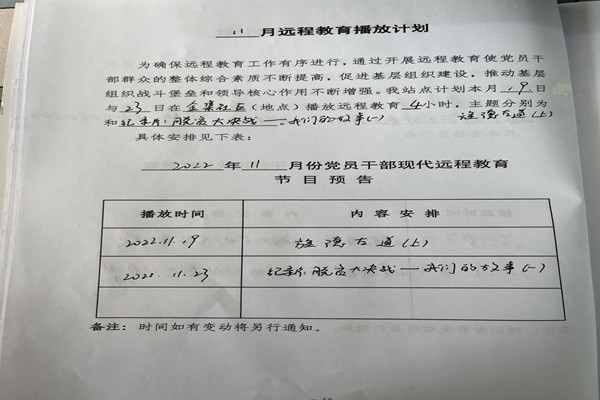 11 月远程教育播放计划
为确保远程教育工作有序进行，通过开展远程教育使党员干
部群众的整体综合素质不断提高，促进基层组织建设，推动基层
组织战斗堡垒和领导核心作用不断增强。我站点计划本月 19 日
与 23 日在金渠社区（地点）播放远程教育 4 小时，主题分别为
和纪录片：脱贫大决战——我们的故事（一） 德 （上）
具体安排见下表：
2022 年 11 月份党员干部现代远程教育
节目预告
播放时间 内容安排
2022.11.19 德 （上）
2022.11.23 纪录片：脱贫大决战——我们的故事（一）
备注：时间如有变动将另行通知。